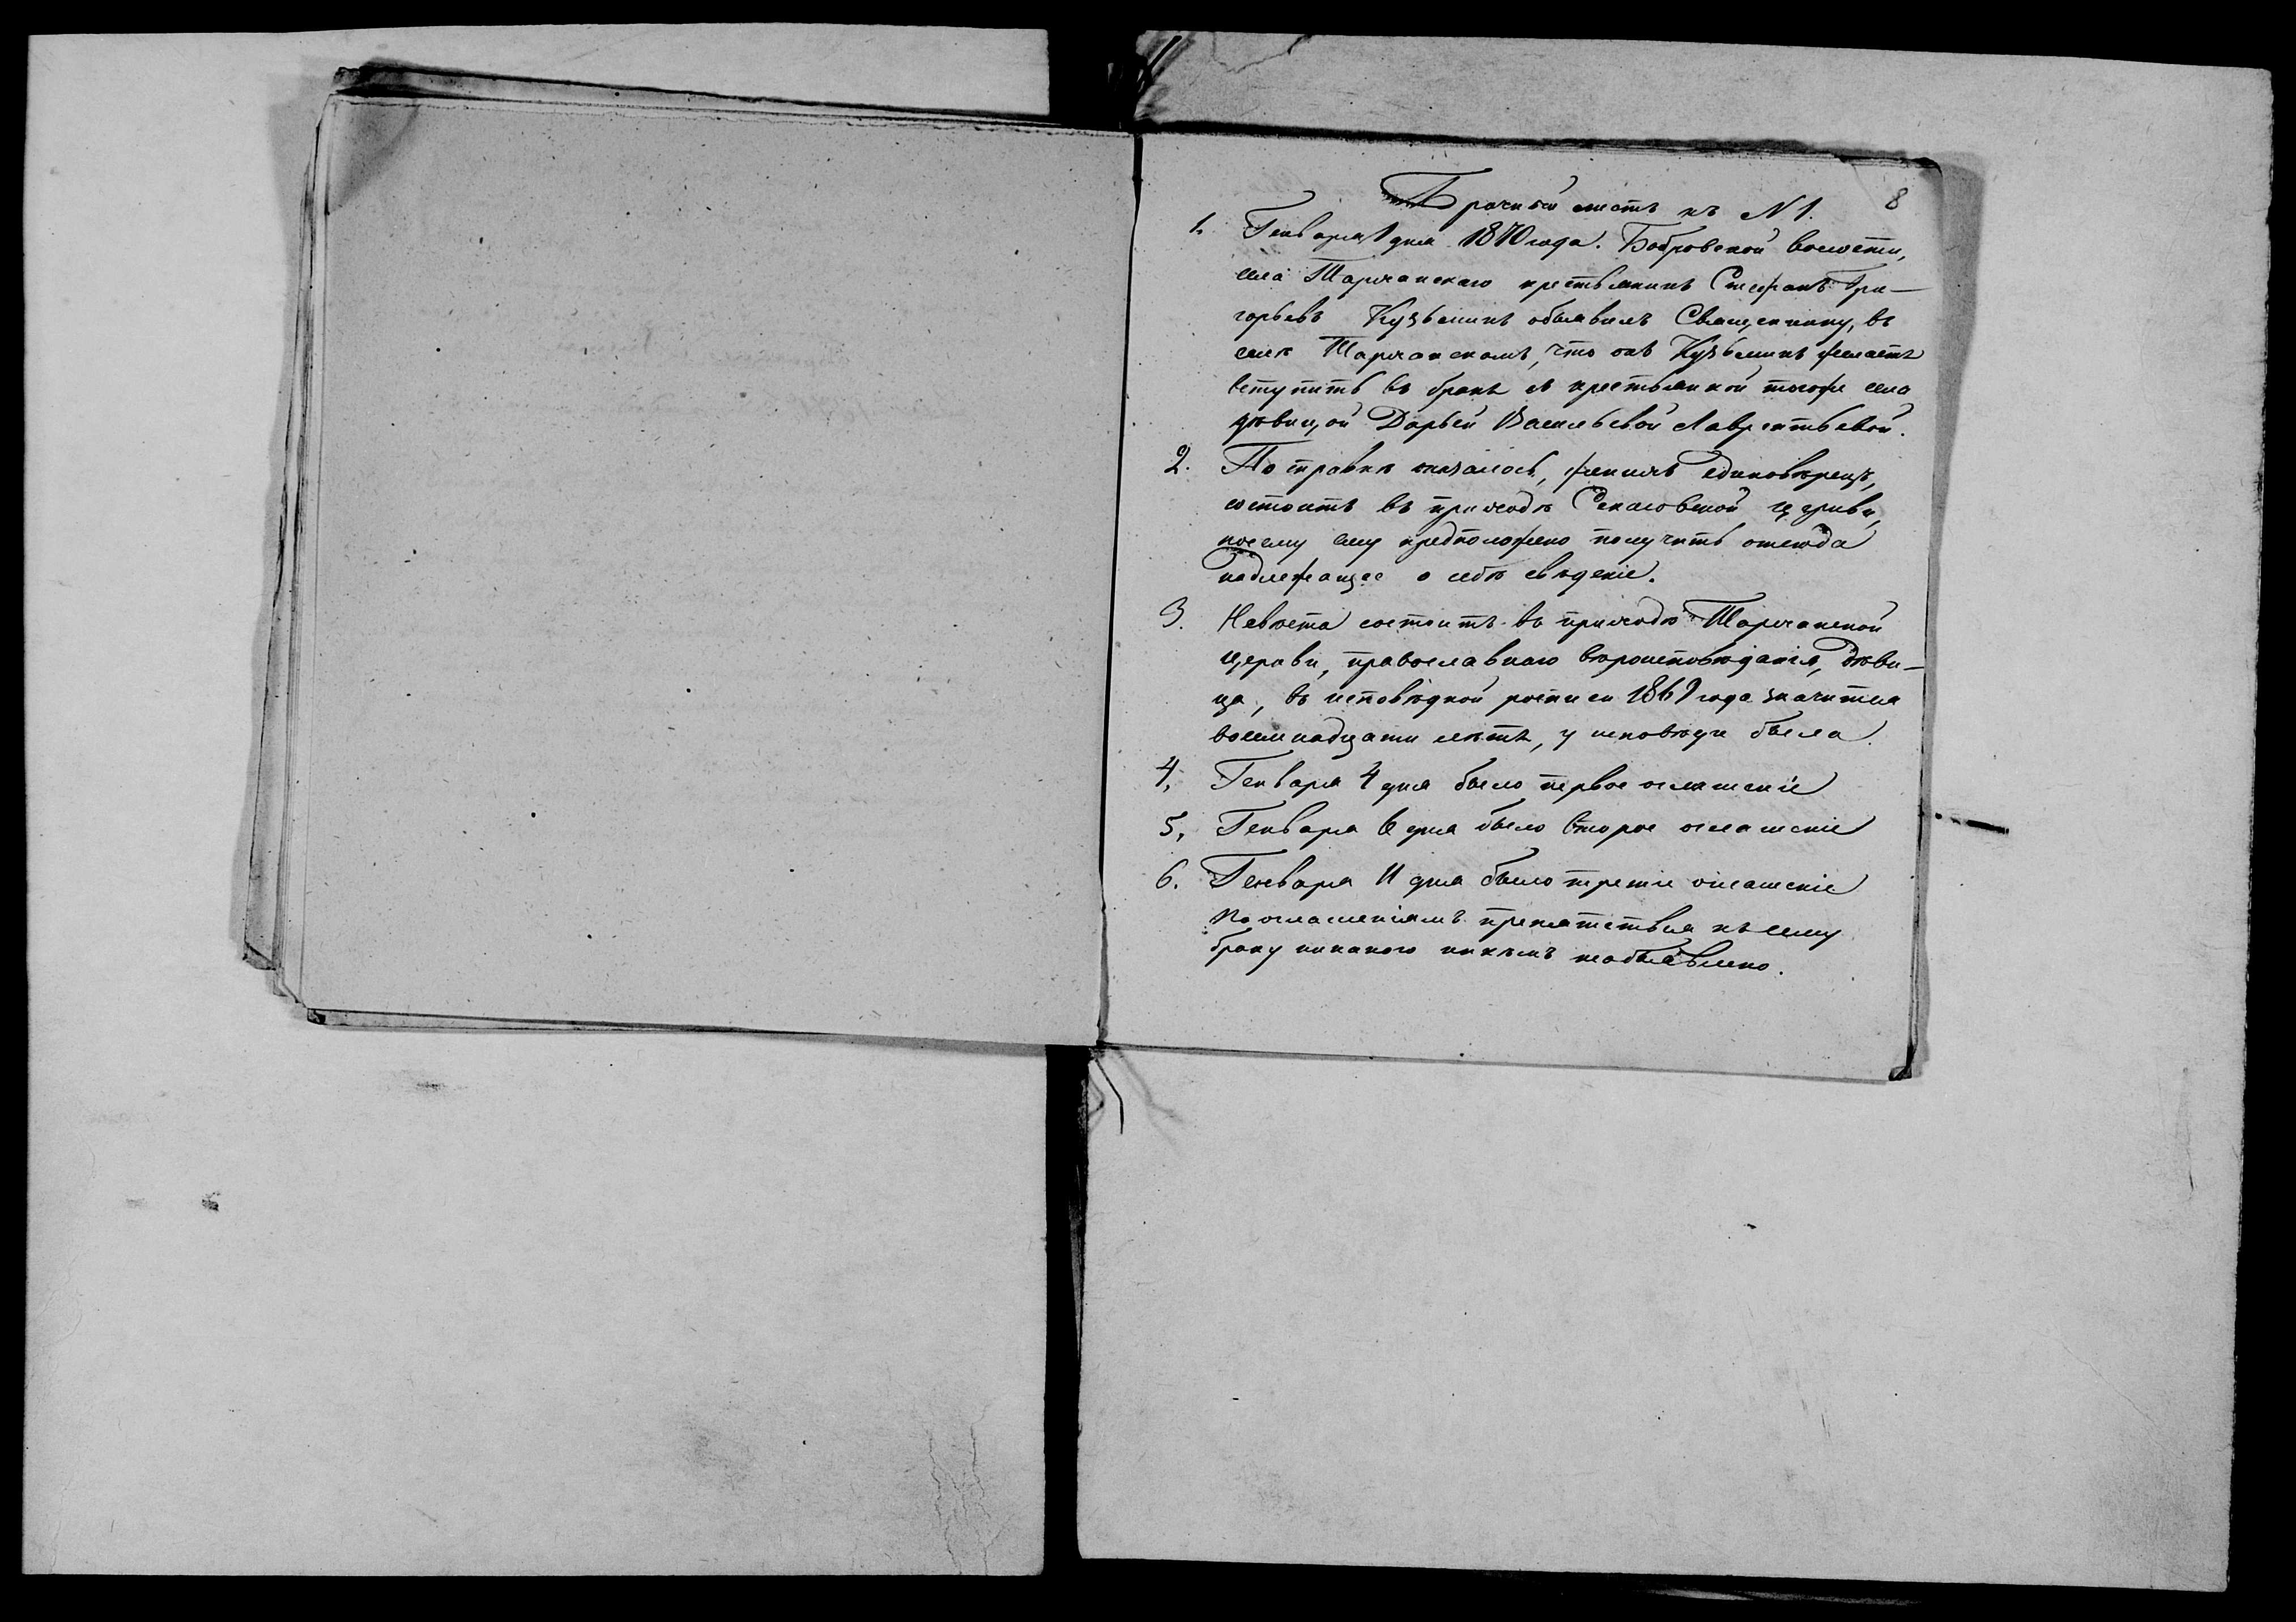 8
Брачный листъ къ N 1.
1. Генваря 1 дня 1870 года. Бобровской волости,
села Тарханскаго крестьянинъ Стефанъ Гри-
горьевъ Кузьминъ объявилъ Священнику, въ
селѣ Тарханскомъ, что онъ Кузьминъ желаетъ
вступить въ бракъ съ крестьянкой тогоже села
дѣвицой Дарьей Васильевой Лаврентьевой.
2. По справкѣ оказалось, женихъ единовѣрецъ,
состоитъ въ приходѣ церкви,
посему ему предположено получить оттюда
надлежащее о себѣ свѣденіе.
3. Невѣста состоитъ въ приходѣ Тарханской
церкви, православнаго вѣроисповѣданія, дѣви-
ца, въ исповѣдной росписи 1869 года значится
восемнадцати лѣтъ, у исповѣди была.
4. Генваря 4 дня было первое оглашеніе
5. Генваря 6 дня было второе оглашеніе
6. Генваря 11 дня было третіе оглашеніе
По оглашеніямъ препятствія къ сему
браку никакого никѣмъ необъявлено.